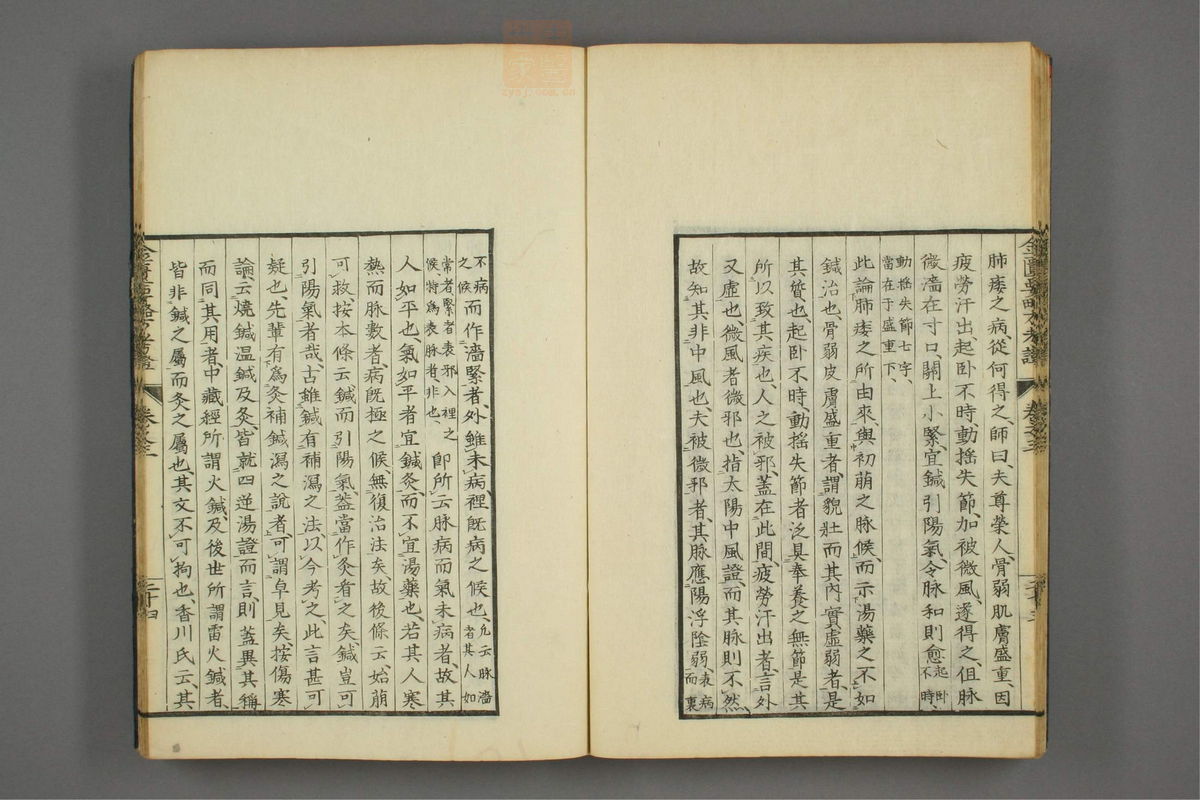 肺痿之病、從何得之、師曰、夫尊榮人、骨弱肌膚盛重、因
疲勞汗出、起卧不時、動搖失節、加被微風、遂得之、但脉
微濇在寸口、關上小緊、宜鍼引陽氣、令脉和則愈、起卧不時、
動搖失節七字、當在于盛重下、
此論肺痿之所由來、與初萌之脉候、而示湯藥之不如
鍼治也、骨弱皮膚盛重者、謂貌壯而其內實虛弱者、是
其質也、起卧不時、動搖失節者、泛具奉養之無節、是其
所以致其疾也、人之被邪、蓋在此間、疲勞汗出者、言外
又虛也、微風者微邪也、指太陽中風證、而其脉則不然、
故知其非中風也、夫被微邪者、其脉應陽浮陰弱、表病而裏
不病之候而作濇緊者、外雖未病、裡旣病之候也、尤云、脉濇者、其人如
常者、緊者、表邪入裡之候、特爲表脉者、非也、卽所云脉病而氣未病者、故其
人如平也、氣如平者、宜鍼灸、而不宜湯藥也、若其人寒
熱而脉數者、病旣極之候、無復治法矣、故後條云、始萠
可救、按本條云鍼而引陽氣、蓋當作灸者之矣、鍼豈可
引陽氣者哉、古雖鍼有補瀉之法、以今考之、此言甚可
疑也、先輩有爲灸補鍼瀉之說者、可謂卓見矣、按傷寒
論、云燒鍼溫鍼及灸、皆就四逆湯證而言、則蓋異其稱
而同其用者、中藏經所謂火鍼、及後世所謂雷火鍼者、
皆非鍼之屬而灸之屬也、其文不可拘也、香川氏云、其
卷之三
二十四